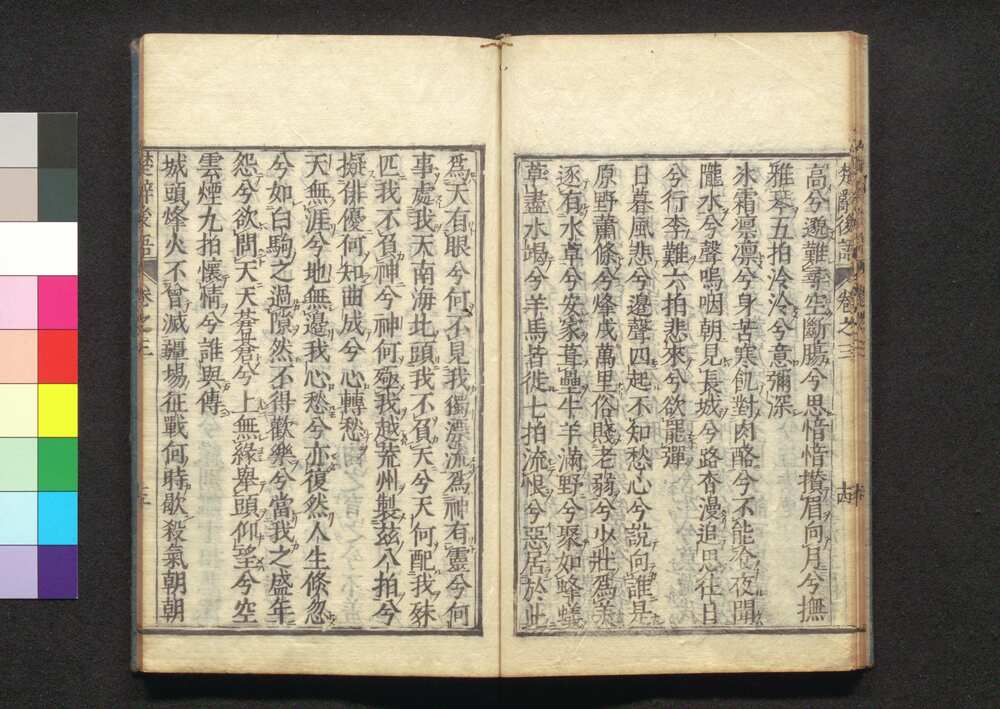 楚辭後語 卷之三
高兮邈難尋空斷腸兮思愔愔攢眉向月兮撫
雅琴五拍泠泠兮意彌深
冰霜凛凛兮身苦寒飢對肉酪兮不能飡夜聞
隴水兮聲嗚咽朝見長城兮路杳漫追思往日
兮行李難六拍悲來兮欲罷彈
日暮風悲兮邊聲四起不知愁心兮説向誰是
原野蕭條兮烽戍萬里俗賤老弱兮少壯爲美
逐有水草兮安家葺壘牛羊滿野兮聚如蜂蟻
草盡水竭兮羊馬皆徙七拍流恨兮惡居於此
爲天有眼兮何不見我獨漂流爲神有靈兮何
事處我天南海北頭我不負天兮天何配我殊
匹我不負神兮神何殛我越荒州製茲八拍兮
擬俳優何知曲成兮心轉愁
天無涯兮地無邊我心愁兮亦復然人生倏忽
兮如白駒之過隙然不得歡樂兮當我之盛年
怨兮欲問天天蒼蒼兮上無緣舉頭仰望兮空
雲煙九拍懷情兮誰與傳
城頭烽火不曾滅疆場征戰何時歇殺氣朝朝
楚辭後語 卷之三